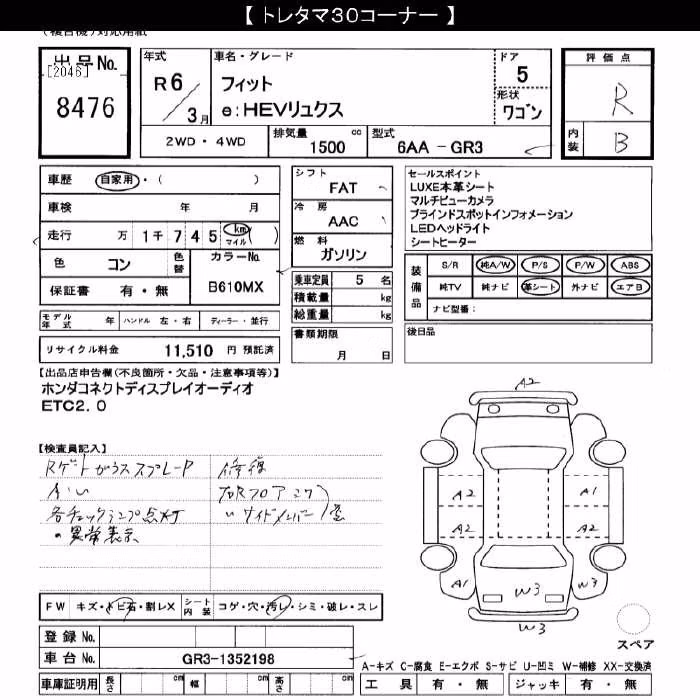 【 トレタマ30コーナー 】
(複合機)対応用紙
出品No.
[2046]
8476
年式
R6/3月
車名・グレード
フィット
e:HEVリュクス
ドア
5
形状
ワゴン
評価点
R
内装
B
2WD・4WD
排気量 1500 cc
型式 6AA - GR3
車歴 自家用・( )
車検 年 月
走行 万 1千745 km マイル
色 コン 色替
カラーNo. B610MX
保証書 有・無
シフト FAT
冷房 AAC
燃料 ガソリン
乗車定員 5 名
積載量 kg
総重量 kg
セールスポイント
LUXE本革シート
マルチビューカメラ
ブラインドスポットインフォメーション
LEDヘッドライト
シートヒーター
装備品
S/R 純A/W P/S P/W ABS
純TV 純ナビ 革シート 外ナビ エアB
ナビ型番:
モデル年式 年 ハンドル 左・右 ディーラー・並行
リサイクル料金 11,510 円 預託済
書類期限
月 日
後日品
【出品店申告欄(不良箇所・欠品・注意事項等)】
ホンダコネクトディスプレイオーディオ
ETC2.0
【検査員記入】
RゲートガラススプレーP
各チェックランプ点灯
の異常表示
修復
右Rフロアミウ
〃サイドメンバー
A2
A2 A1
A2 A2
A1 W3 W3
W3
スペア
FW キズ・トビ石・割レX シート内装 コゲ・穴・汚レ・シミ・破レ・スレ
登録No.
車台No. GR3-1352198
車庫証明用 長さ cm 幅 cm 高さ cm
A-キズ C-腐食 E-エクボ S-サビ U-凹ミ W-補修 XX-交換済
工具 有・無 ジャッキ 有・無